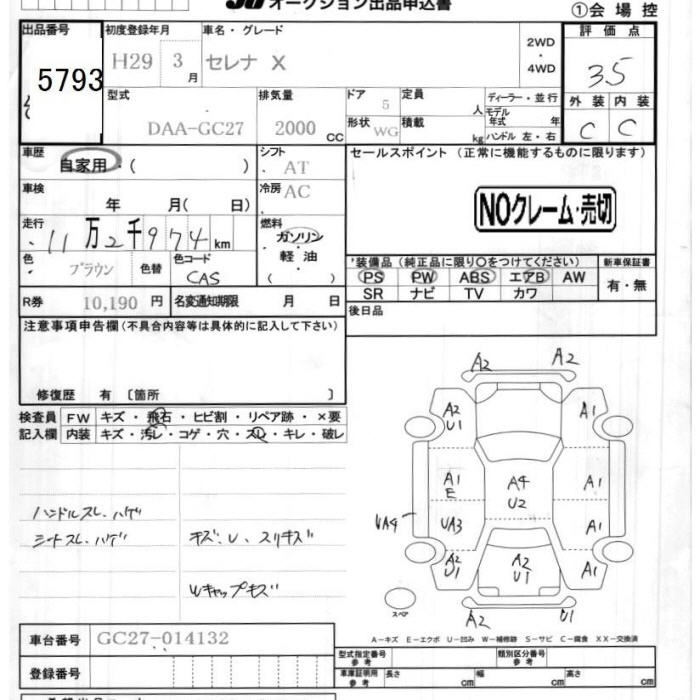 オークション出品申込書
①会場控
出品番号 初度登録年月 車名・グレード 評価点
5793 H29 3月 セレナ X 2WD・4WD 3.5
型式 排気量 ドア 定員 ディーラー・並行 外装 内装
DAA-GC27 2000 CC 5 人 モデル年式 年 C C
形状 WG 積載 kg ハンドル 左・右
車歴 シフト セールスポイント (正常に機能するものに限ります)
自家用・( ) AT
車検 冷房 AC
年 月( 日) NOクレーム・売切
走行 燃料
11万2千974km ガソリン・軽油・( )
色 色コード *装備品 (純正品に限り○をつけてください) 新車保証書
ブラウン 色替 CAS PS PW ABS エアB AW 有・無
R券 10,190円 名変通知期限 月 日 SR ナビ TV カワ
注意事項申告欄(不具合内容等は具体的に記入して下さい) 後日品
修復歴 有 〔箇所 〕
検査員 FW キズ・飛石・ヒビ割・リペア跡・×要
記入欄 内装 キズ・汚レ・コゲ・穴・スレ・キレ・破レ
A2 A2
A2 U1 A1
A1 E A4 U2 A1
ハンドルスレ、ハゲ UA4 UA3 A1
シートスレ、ハゲ キズ、U、スリキズ
A2 U1 A2 U1 A1
Wキャップキズ
スペア A2 U1
A－キズ E－エクボ U－凹み W－補修跡 S－サビ C－腐食 XX－交換済
車台番号 GC27-014132
型式指定番号 参考 類別区分番号 参考
登録番号 車庫証明用 参考 長さ cm 幅 cm 高さ cm